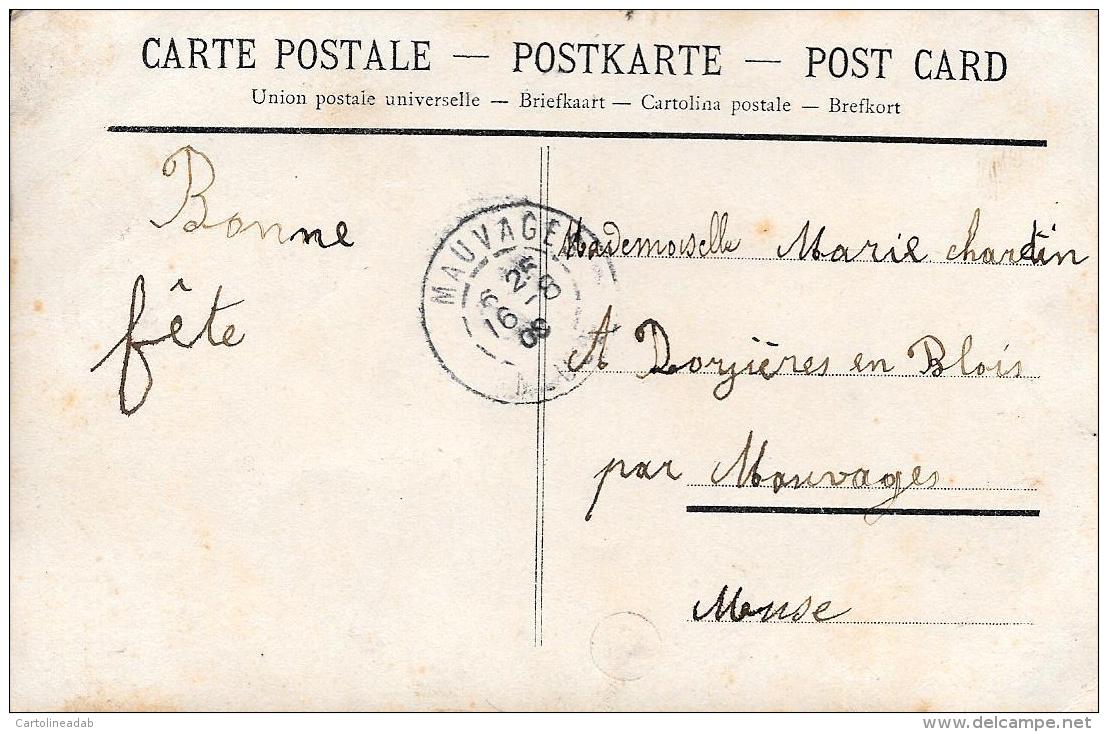 CARTE POSTALE — POSTKARTE — POST CARD
Union postale universelle — Briefkaart — Cartolina postale — Brefkort
Bonne
fête
MAUVAGES
25 -8
16 08
MEUSE
Mademoiselle Marie Chardin
A Dorjières en Blois
par Mauvages
Meuse
Cartolineadab
delcampe.net